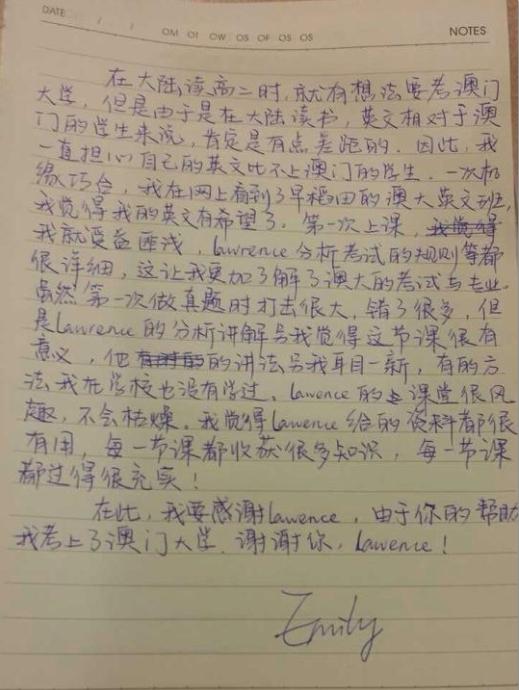 DATE / /
OM OT OW OS OF OS OS
NOTES
在大陆读高二时,就有想法要考澳门
大学,但是由于是在大陆读书,英文相对于澳
门的学生来说,肯定是有点差距的。因此,我
一直担心自己的英文比不上澳门的学生。一次机
缘巧合,我在网上看到了早稻田的澳大英文班,
我觉得我的英文有希望了。第一次上课,我觉得
我就受益匪浅,lawrence分析考试的规则等都
很详细,这让我更加了解了澳大的考试与专业。
虽然第一次做真题时打击很大,错了很多,但
是Lawrence的分析讲解另我觉得这节课很有
意义,他的讲法另我耳目一新,有的方
法我在学校也没有学过。lawence的课堂很风
趣,不会枯燥。我觉得lawence给的资料都很
有用,每一节课都收获很多知识,每一节课
都过得很充实!
在此,我要感谢lawence,由于你的帮助
我考上了澳门大学。谢谢你,lawence!
Emily